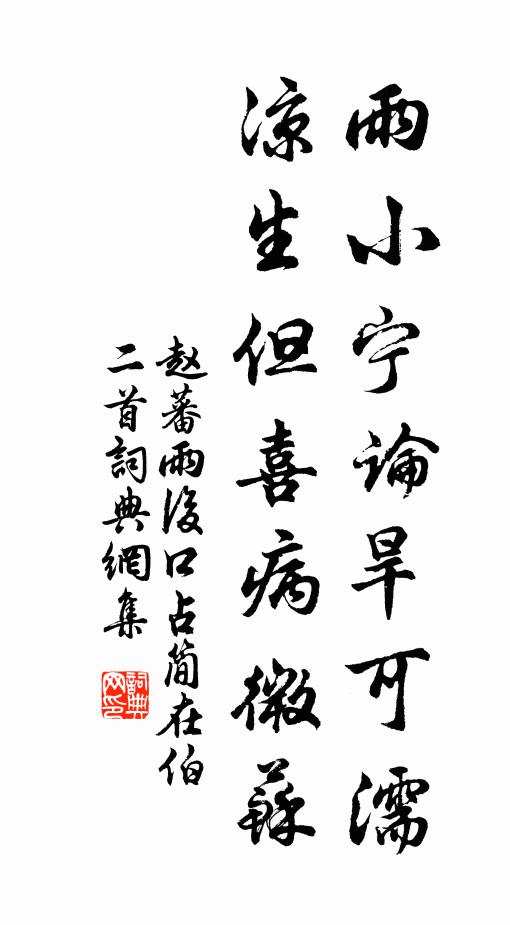 雨小宁論旱可濡
涼生但喜病微蘇
赵蕃雨後口占简在伯
二首詞典網集
詞典网印